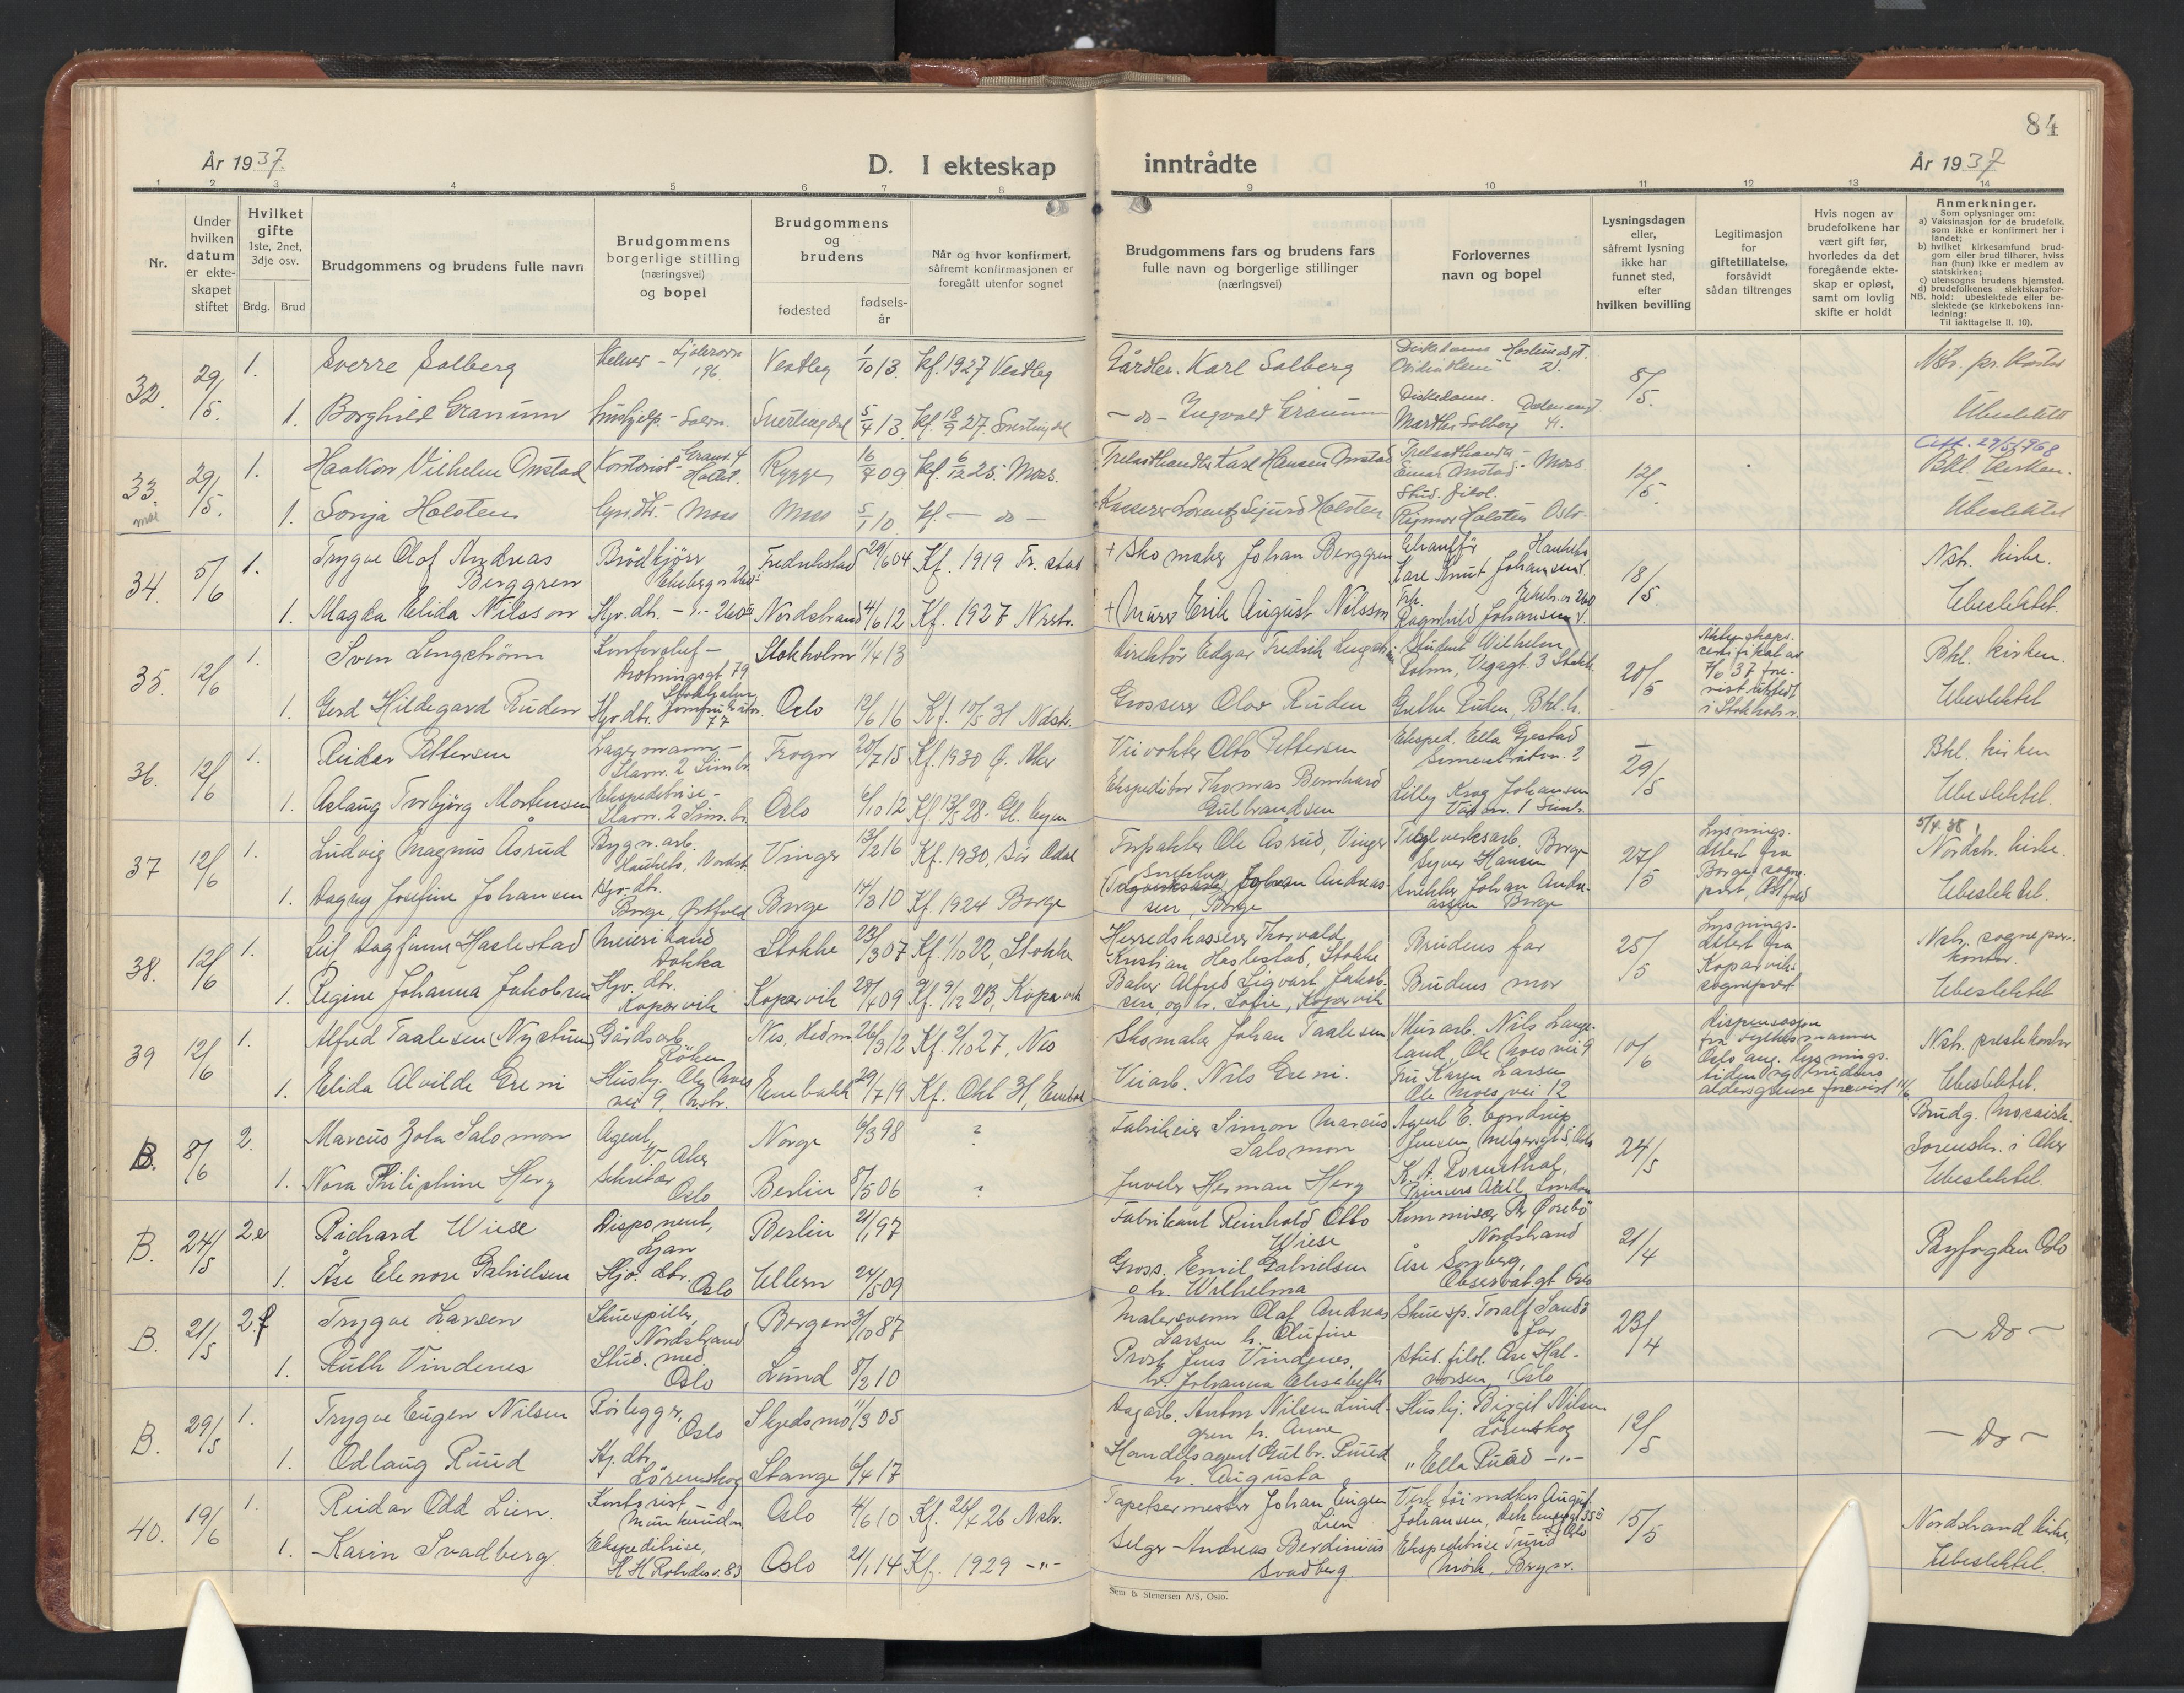 84
År 1937.
D. I ekteskap
inntrådte
År 1937
1 2 3 4 5 6 7 8 9 10 11 12 13 14
Nr.
Under
hvilken
datum
er ekte-
skapet
stiftet
Hvilket
gifte
1ste, 2net,
3dje osv.
Brdg. Brud
Brudgommens og brudens fulle navn
Brudgommens
borgerlige stilling
(næringsvei)
og bopel
Brudgommens
og
brudens
fødested
fødsels-
år
Når og hvor konfirmert,
såfremt konfirmasjonen er
foregått utenfor sognet
Brudgommens fars og brudens fars
fulle navn og borgerlige stillinger
(næringsvei)
Forlovernes
navn og bopel
Lysningsdagen
eller,
såfremt lysning
ikke har
funnet sted,
efter
hvilken bevilling
Legitimasjon
for
giftetillatelse,
forsåvidt
sådan tiltrenges
Hvis nogen av
brudefolkene har
vært gift før,
hvorledes da det
foregående ekte-
skap er opløst,
samt om lovlig
skifte er holdt
Anmerkninger.
Som oplysninger om:
a) Vaksinasjon for de brudefolk,
som ikke er konfirmert her i
landet;
b) hvilket kirkesamfund brud-
gom eller brud tilhører, hviss
han (hun) ikke er medlem av
statskirken;
c) utensogns brudens hjemsted.
d) brudefolkenes slektskapsfor-
NB. hold: ubeslektede eller be-
slektede (se kirkebokens inn-
ledning:
Til iakttagelse II. 10).
32. 29/5. 1. Sverre Solberg Vestleg 1/10 13 Kf. 1927 Vestleg Gårdbr. Karl Solberg 8/5.
1. Borghild Granum 5/4 13 Kf. 18/9 27. -do- Ingvald Granum Martha Solberg Ubeslektet
33. 29/5. 1. Haakon Vilhelm Onstad Kontorist Rygge 16/7 09 Kf. 6/12 25. Moss. Trelasthandler Karl Hansen Onstad Trelasthandler Einar Onstad - Moss 12/5. Bkl. kirken.
1. Sonja Holsten - Moss Moss 5/1 10 Kf. - do - Kasserer Lorentz Sigurd Holsten Stud. filol. Holsten Oslo. Ubeslektet
34. 5/6 1. Trygve Olaf Andreas
Berggren Brödkjörer Fredrikstad 29/6 04 Kf. 1919 Fr.stad + Skomaker Johan Berggren Chauffør Kåre Knut Johansen 18/5. Nstr. kirke.
1. Magda Elida Nilsson Hjv.dtr. Nordstrand 4/6 12 Kf. 1927 Nrstr. + Murer Erik August Nilsson Ragnhild Johansen Ubeslektet.
35. 12/6 1. Sven Lengström Kontorchef -
Drotningsgt 79
Stokholm Stokholm 11/4 13 Direktör Edgar Fredrik Lengström Student Wilhelm
Palm, Vegagt. 3 Stokh. 20/5 7/6 37 fore-
vist, utstedt
i Stokholm. Bkl. kirken.
1. Gerd Hildegard Ruden Hjv.dtr. Jomfrubråten 77 Oslo 12/6 16 Kf. 10/5 31 Ndstr. Grosserer Olav Ruden Grethe Ruden, Bkl.h. Ubeslektet
36. 12/6 1. Reidar Pettersen Lagermann -
Stavnv. 2 Simbr. Trogn 20/7 15 Kf. 1930 Ø. Aker Veivokter Otto Pettersen Eksped. Ella Gjestad
Simensbråtvn. 2 29/5 Bkl. kirken
1. Aslaug Torbjørg Mortensen Ekspeditrise -
Stavnv. 2 Sim.br. Oslo 6/10 12 Kf. 13/5 28. Gl. Byen Ekspeditør Thomas Bernhard
Gulbrandsen Lilly Krog Johansen Ubeslektet.
37 12/6 1. Ludvig Magnus Åsrud Bygn. arb.
Hauketo, Nordstr. Vinger 13/2 16 Kf. 1930, Sör Odal Forpakter Ole Åsrud, Vinger Teglverksarb.
Syver Hansen Borge 27/5 Lysnings-
attest fra
Borge sogne-
prest, Østfold 5/4 38
Nordstr. kirke.
1. Dagny Josefine Johansen Hjv.dtr.
Borge, Østfold Borge 14/3 10 Kf. 1924 Borge Snekker Johan Andreas-
sen, Borge Snekker Johan Andre-
assen Borge Ubeslektet.
38. 12/6 1. Leif Dagfinn Haslestad Meierikand
Dokka Stokke 23/3 07 Kf. 1/10 22, Stokke Herredskasserer Thorvald
Kristian Haslestad, Stokke Brudens far 25/5 Lysnings-
attest fra
Kopervik
sogneprest Nstr. sogneprs.
kontor.
1. Regine Johanna Jakobsen Hjv. dtr.
Kopervik Kopervik 28/4 09 Kf. 9/12 23, Kopervik Baker Alfred Sigvart Jakob-
sen, og h. Sofie, Kopervik Brudens mor Ubeslektet
39 12/6 1. Alfred Paalesen (Nystuen) Gårdsarb.
Röken Nes, Hedm. 26/3 12 Kf. 2/10 27, Nes Skomaker Johan Paalesen Murarb. Nils Lange-
land, Ole Moes vei 9 10/6 Dispensasjon
fra Fylkesmannen
Oslo ang. lysnings-
tiden og brudens
aldersgrense forevist 11/6 Nstr. prestekontor
1. Elida Alvilde Greni Hushj. Ole Moes
vei 9, Nstr. Enebakk 29/7 19 Kf. Okt 31, Enebak Veiarb. Nils Greni. Fru Karen Larsen
Ole Moes vei 12 Ubeslektet.
B. 8/6 2. Marcus Zola Salomon Agent,
V. Aker Norge 6/3 98 ? Fabrikeier Simon Marcus
Salomon Agent E. Gyndrup
Jensen, Meltzersgt 5, Oslo 24/5 Brudg. Mosaisk.
Sorenskr. i Aker
1. Nora Philiphine Herz Sekretær
Oslo Berlin 8/5 06 ? Juveler Herman Herz K. A. Rosenthal,
London Ubeslektet.
B. 24/5 2. Richard Wiese Disponent,
Ljan Berlin 21/1 97 Fabrikant Reinhold Otto
Wiese Kommisær Nordstrand 21/4 Byfogden Oslo
1. Åse Elenore Gabrielsen Hjv. dtr.
Oslo Ullern 24/5 09 Gross. Emil Gabrielsen
o h. Wilhelma Åse Sonberg,
Observat.gt Oslo
B. 21/5 2. Trygve Larsen Skuespiller,
Nordstrand Bergen 3/10 87 Malersvenn Olaf Andreas
Larsen h. Olufine Skuesp. Toralf Sandø 23/4 - Do -
1. Ruth Vindenes Stud. med.
Oslo Lund 8/2 10 Prost Jens Vindenes,
h. Johanna Elisabeth Stud. filol. Åse Hal-
vorsen, Oslo
B. 29/5 1. Trygve Eugen Nilsen Rörlegger,
Oslo Skjedsmo 11/3 05 Dagarb. Anton Nilsen Lund-
gren h. Anne Hushj. Birgit Nilsen
Lörenskog 12/5 - Do -
1. Odlaug Ruud Hj. dtr.
Lörenskog Stange 6/4 17 Handelsagent Gulbr. Ruud
h. Augusta " Ella Ruud -"-
40. 19/6 1. Reidar Odd Lien. Kontorist,
Munkerudvn. Oslo 4/6 10 Kf. 26 Nstr. Tapetsermester Johan Eugen
Lien Verktöimaker August
Johansen, Oslo 15/5 Nordstrand kirke,
1. Karin Svadberg. Ekspeditrise,
H H Rohdes v. 83 Oslo 21/1 14 Kf. 1929 -"- Selger Andreas Berdinius
Svadberg Ekspeditrise Turid
Mörk, Bryn. Ubeslektet.
Sem & Stenersen A/S, Oslo.